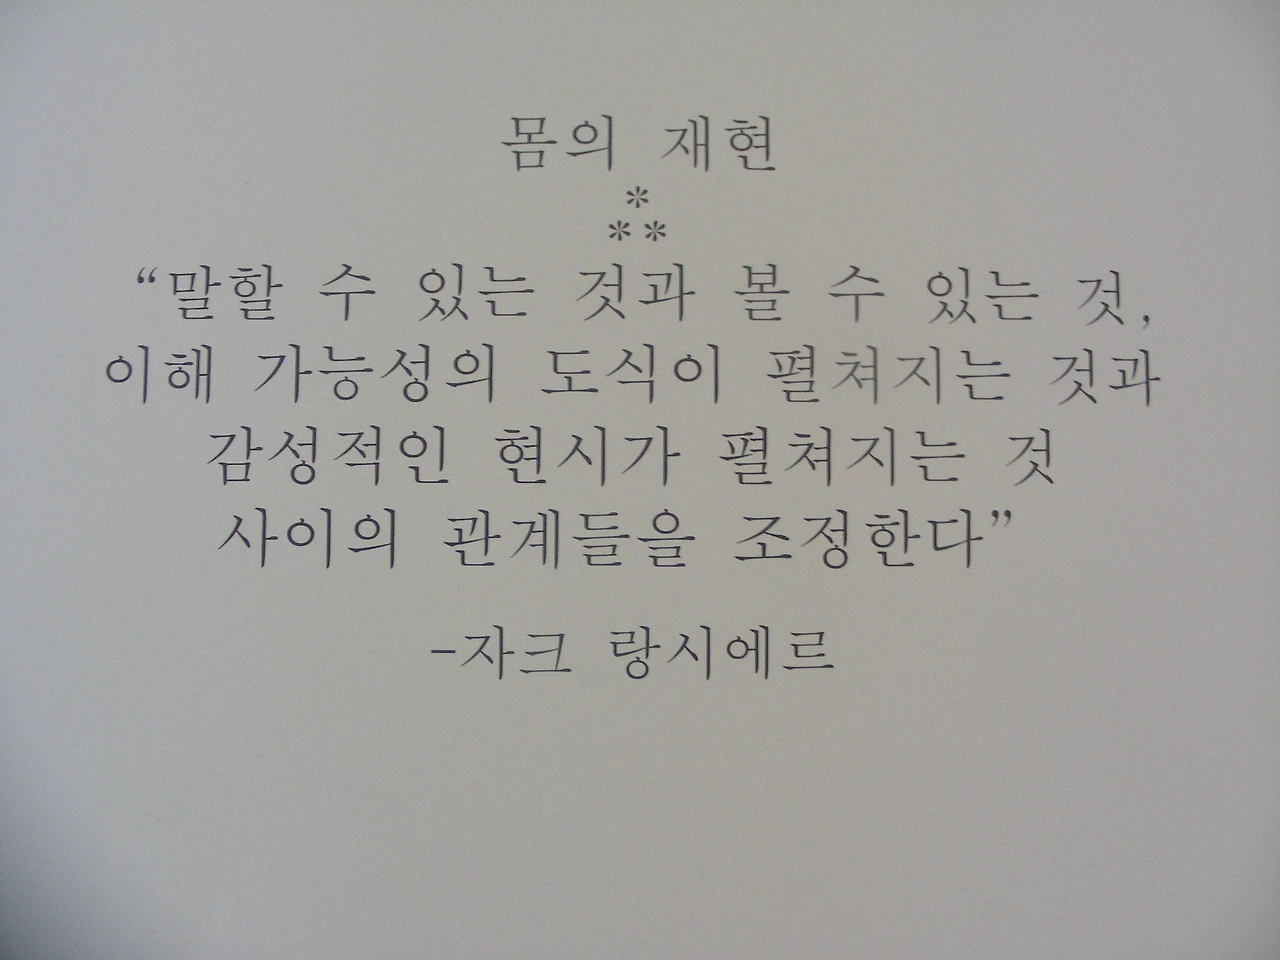 몸의 재현
*
**
“말할 수 있는 것과 볼 수 있는 것,
이해 가능성의 도식이 펼쳐지는 것과
감성적인 현시가 펼쳐지는 것
사이의 관계들을 조정한다”
-자크 랑시에르